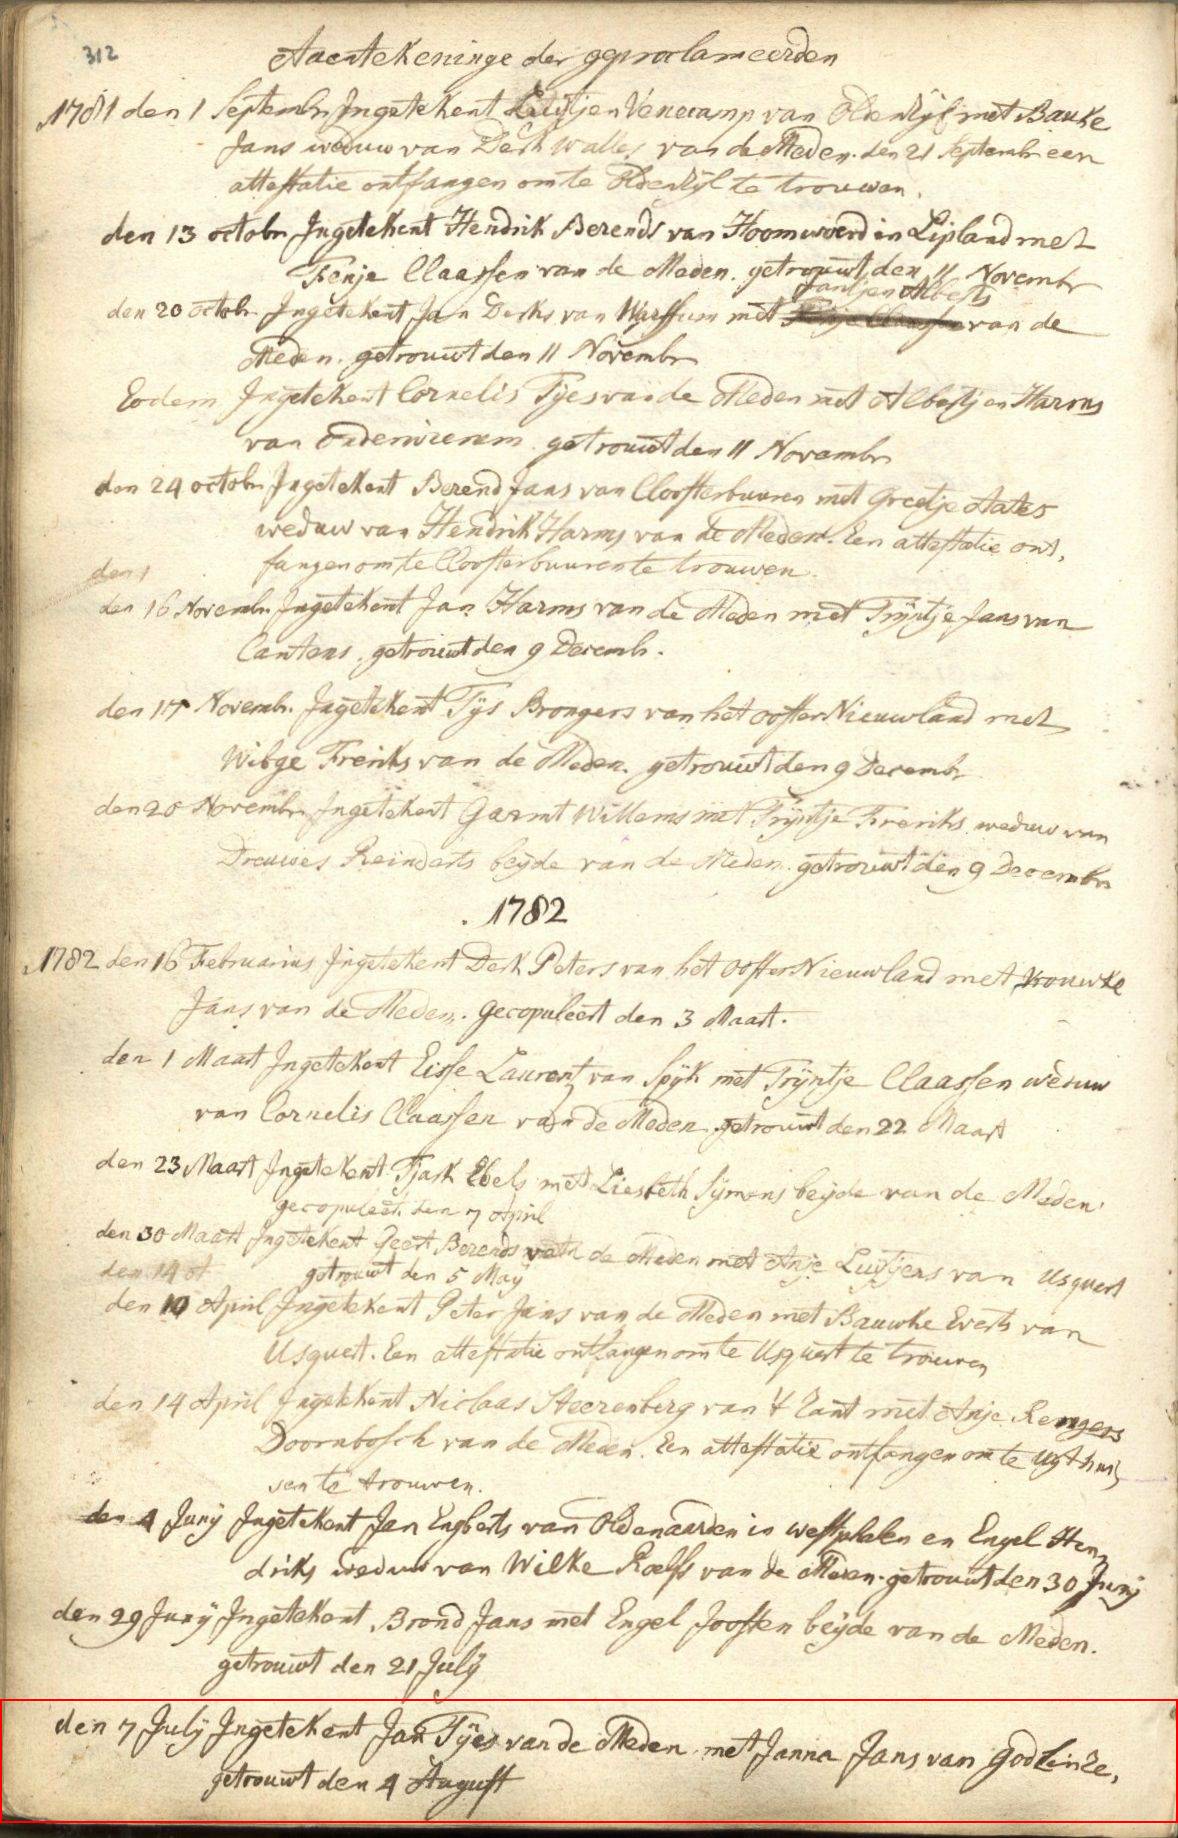 312
Aaentekeninge der geproclameerden
1781 den 1 Septembr Ingetekent Luitjen Venecamp van Oldenzijl met Bauke
Jans weduw van Derk Walles van de Meden. den 21 Septembr een
attestatie ontfangen om te Oldezijl te trouwen.
den 13 octobr Ingetekent Hendrik Berends van in Lipland met
Fenje Claassen van de Meden. getrouwt den 11 Novembr
Jantjen Alberts
den 20 octobr. Ingetekent Jan Derks van Warffum met van de
Meden. getrouwt den 11 Novembr
Eodem Ingetekent Cornelis Tyes van de Meden met Albertjen Harms
van getrouwt den 11 Novembr
den 24 octobr Ingetekent Berend Jans van Cloosterbuuren met Greetje Aates
weduw van Hendrik Harms van de Meden. Een attestatie ont,
fangen om te Cloosterbuuren te trouwen.
den 1
den 16 Novembr. Ingetekent Jan Harms van de Meden met Trijntje Jans van
Cantens. getrouwt den 9 Decemb.
den 17 Novemb. Ingetekent Tijs Brongers van het ooster Nieuwland met
Wibge Freriks van de Meden. getrouwt den 9 Decembr
den 20 Novembr Ingetekent Garmt Willems met Trijntje Freriks weduw van
Dreuwes Reinderts beijde van de Meden. getrouwt den 9 Decembr
1782
1782 den 16 Februarius Ingetekent Derk Peters van het ooster Nieuwland met Vrouwke
Jans van de Meden. Gecopuleert den 3 Maart.
den 1 Maart Ingetekent Eisse Laurentz van Spijk met Trijntje Claassen weduw
van Cornelis Claassen van de Meden getrouwt den 22 Maart
den 23 Maart Ingetekent Tjark Ebels met Liesbeth Sijmens beijde van de Meden.
gecopuleert den 7 April
den 30 Maart Ingetekent Geert Berends van de Meden met Anje Luitjers van Usquert
den 14 getrouwt den 5 Maij
den 10 April Ingetekent Peter Jans van de Meden met Bauwke Everts van
Usquert. Een attestatie ontfangen om te Usquert te trouwen
den 14 April Ingetekent Niclaas Steerenberg van 't Zant met Anje Remgers
Doornbosch van de Meden. Een attestatie ontfangen om te Uijthui
sen te trouwen.
den 4 Junij Ingetekent Jan Engberts van Oldenaarden in westphalen en Engel Hen
driks weduw van Wilke Roelfs van de Meden. getrouwt den 30 Junij
den 29 Junij Ingetekent Brond Jans met Engel Joosten beijde van de Meden.
getrouwt den 21 Julij
den 7 Julij Ingetekent Jan Tijes van de Meden met Janna Jans van Godlinze,
getrouwt den 4 August